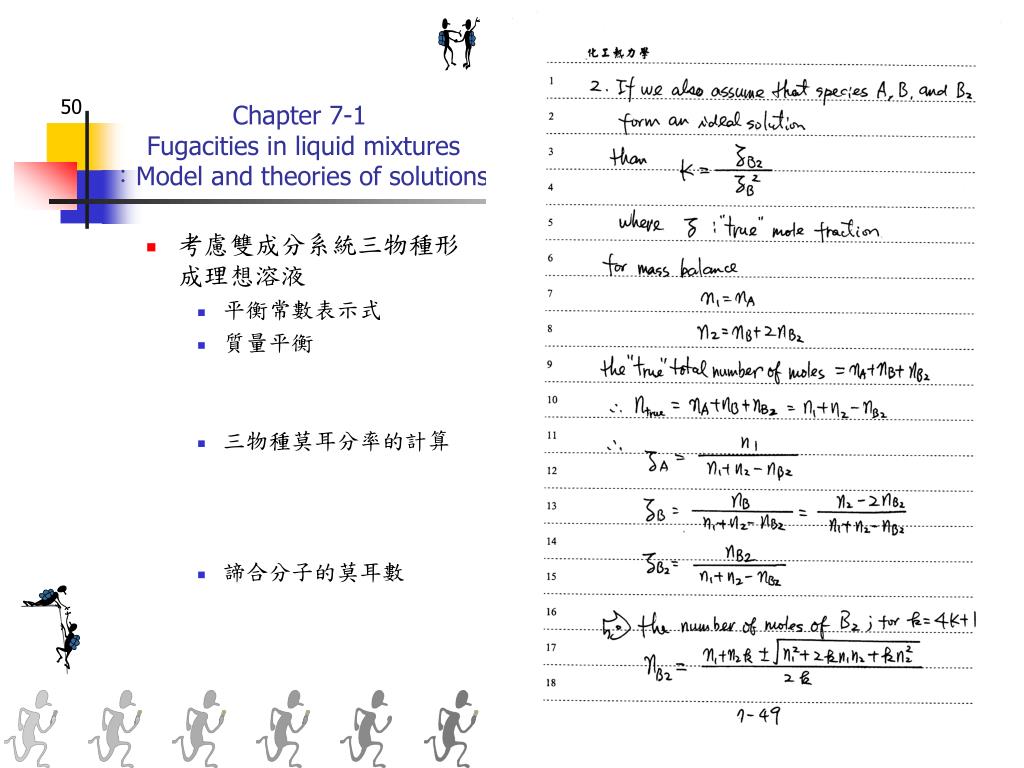 50
Chapter 7-1
Fugacities in liquid mixtures
: Model and theories of solutions
考慮雙成分系統三物種形
成理想溶液
平衡常數表示式
質量平衡
三物種莫耳分率的計算
諦合分子的莫耳數
化工熱力學
1 2. If we also assume that species A, B, and B₂
2 form an ideal solution
3 than K = ζB₂ / ζB²
4
5 where ζ : "true" mole fraction
6 for mass balance
7 n₁ = nA
8 n₂ = nB + 2nB₂
9 the "true" total number of moles = nA + nB + nB₂
10 ∴ n true = nA + nB + nB₂ = n₁ + n₂ − nB₂
11 ∴ ζA = n₁ / (n₁ + n₂ − nB₂)
12
13 ζB = nB / (n₁ + n₂ − nB₂) = (n₂ − 2nB₂) / (n₁ + n₂ − nB₂)
14
15 ζB₂ = nB₂ / (n₁ + n₂ − nB₂)
16 the number of moles of B₂ ; for k = 4K+1
17 nB₂ = (n₁ + n₂k ± √(n₁² + 2kn₁n₂ + kn₂²)) / 2k
18
7-49